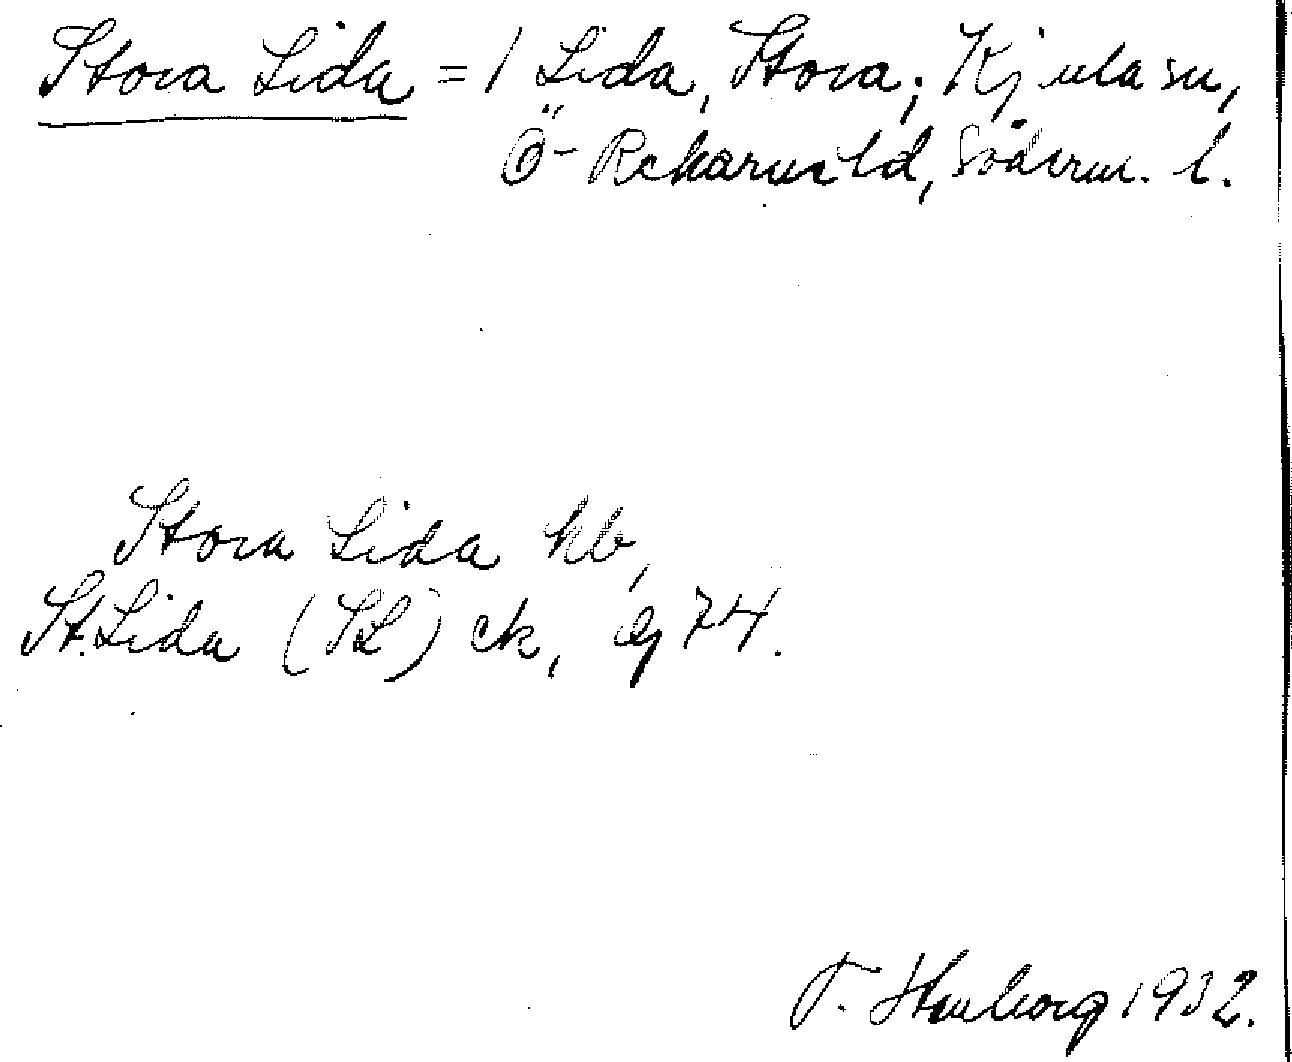 Stora Lida = 1 Lida, Stora; Kjula sn,
Ö-Rekarne hd, Söderm. l.
Stora Lida kb,
St. Lida (SL) ek, eg 74.
1932.